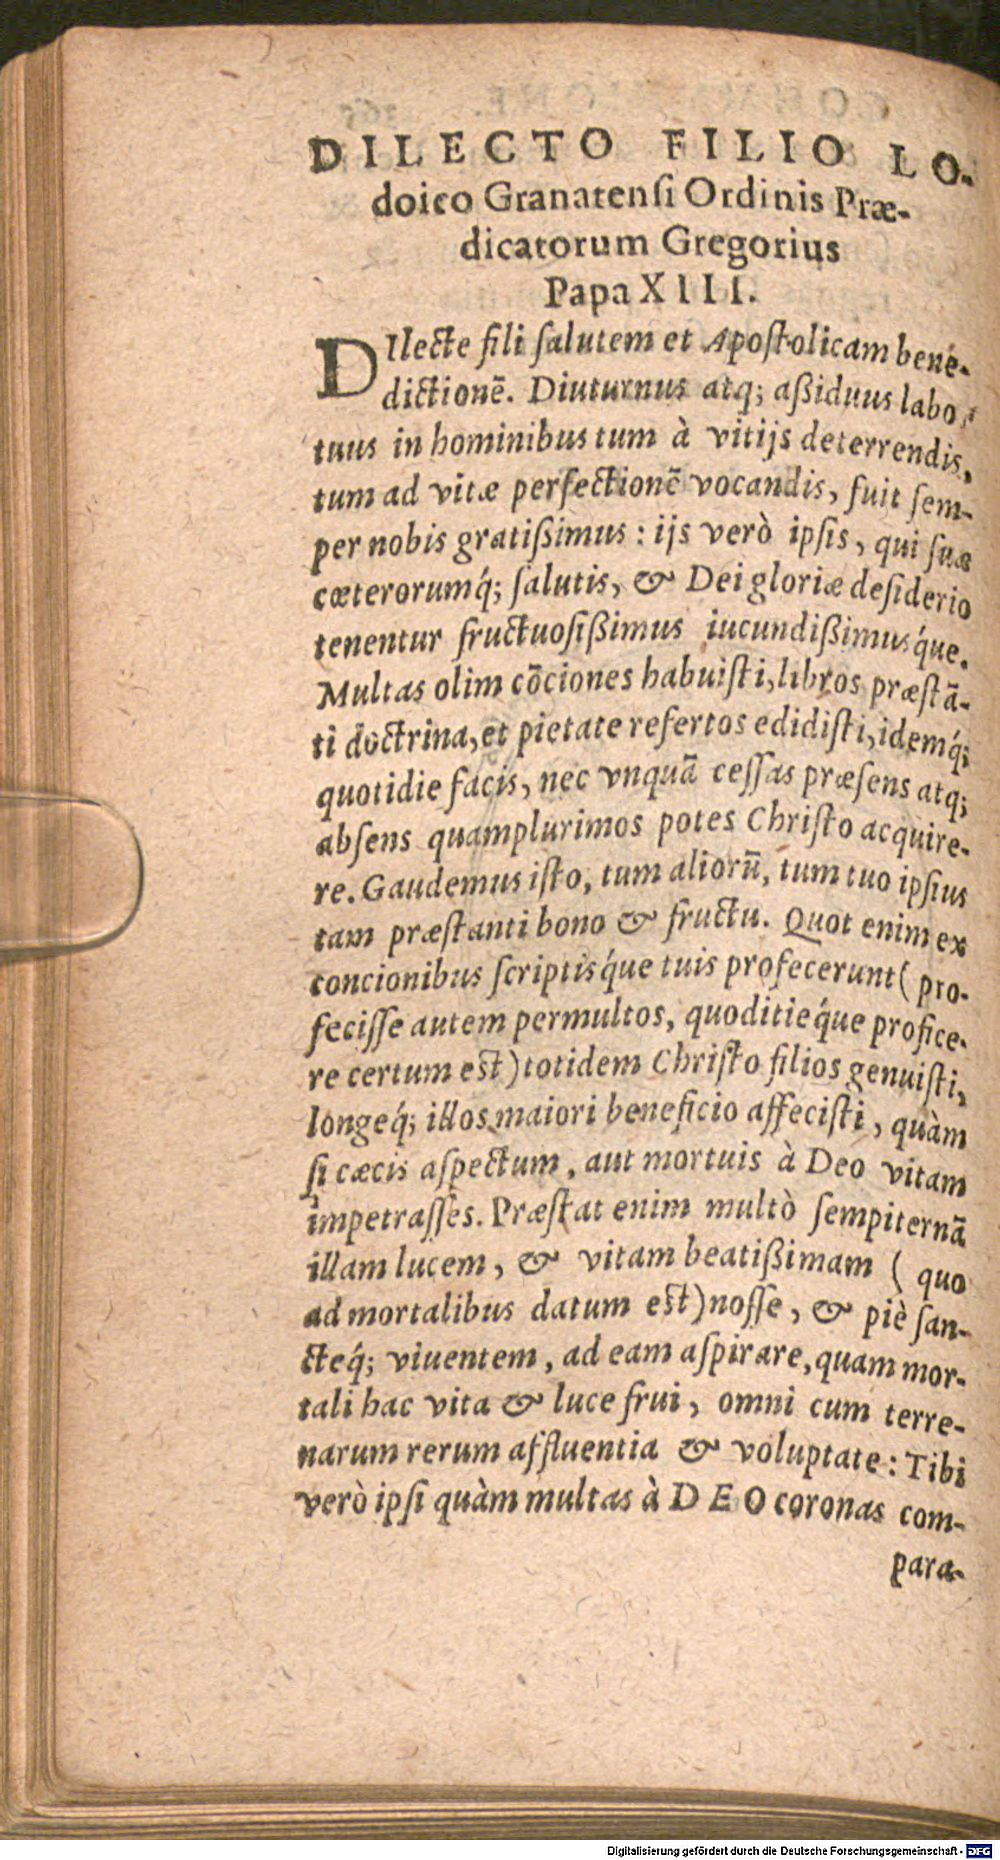 DILECTO FILIO LO-
doico Granatensi Ordinis Præ-
dicatorum Gregorius
Papa XIII.
DIlecte fili ſalutem et Apoſtolicam bene-
dictionē. Diuturnus atq; aßiduus labor
tuus in hominibus tum à vitijs deterrendis,
tum ad vitæ perfectionē vocandis, fuit ſem-
per nobis gratißimus : ijs verò ipſis, qui ſuæ
cæterorumq́; ſalutis, & Dei gloriæ deſiderio
tenentur fructuoſißimus iucundißimusq́ue.
Multas olim cōciones habuiſti, libros præſtā-
ti doctrina, et pietate refertos edidiſti, idemq́;
quotidie facis, nec vnquā ceſſas præſens atq;
abſens quamplurimos potes Chriſto acquire-
re. Gaudemus iſto, tum aliorū, tum tuo ipſius
tam præſtanti bono & fructu. Quot enim ex
concionibus ſcriptisq́ue tuis profecerunt ( pro-
feciſſe autem permultos, quoditieq́ue profice-
re certum eſt) totidem Chriſto filios genuiſti,
longeq́; illos maiori beneficio affeciſti, quàm
ſi cæcis aſpectum, aut mortuis à Deo vitam
impetraſſes. Præſtat enim multò ſempiternā
illam lucem, & vitam beatißimam ( quo
ad mortalibus datum eſt) noſſe, & piè ſan-
cteq́; viuentem, ad eam aſpirare, quam mor-
tali hac vita & luce frui, omni cum terre-
narum rerum affluentia & voluptate : Tibi
verò ipſi quàm multas à DEO coronas com-
para-
Digitalisierung gefördert durch die Deutsche Forschungsgemeinschaft - DFG